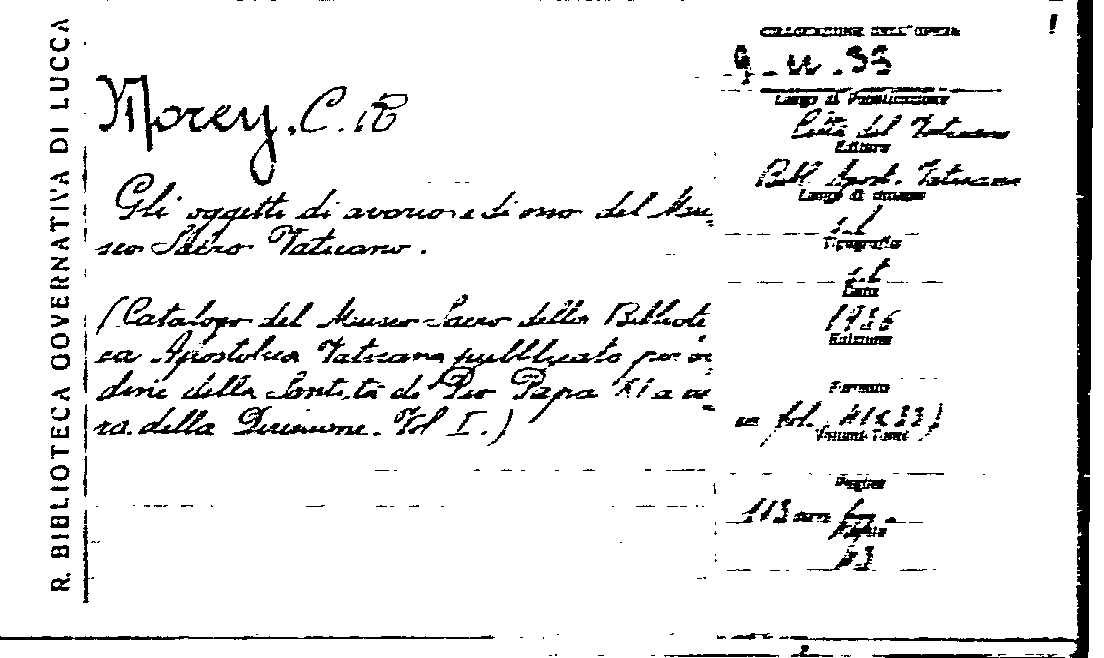 R. BIBLIOTECA GOVERNATIVA DI LUCCA
Morey, C. R
Gli oggetti di avorio e di osso del Mu_
seo Sacro Vaticano.
(Catalogo del Museo Sacro della Bibliote
ca Apostolica Vaticana pubblicato per or_
dine della Santità di Pio Papa XI a cu_
ra della Direzione. Vol I.)
COLLOCAZIONE DELL'OPERA
Luogo di Pubblicazione
Città del Vaticano
Editore
Bibl. Apost. Vaticana
Luogo di stampa
s.l
Tipografia
s.t
Data
1936
Edizione
Formato
in fol.
Volumi-Tomi
Pagine
113 con